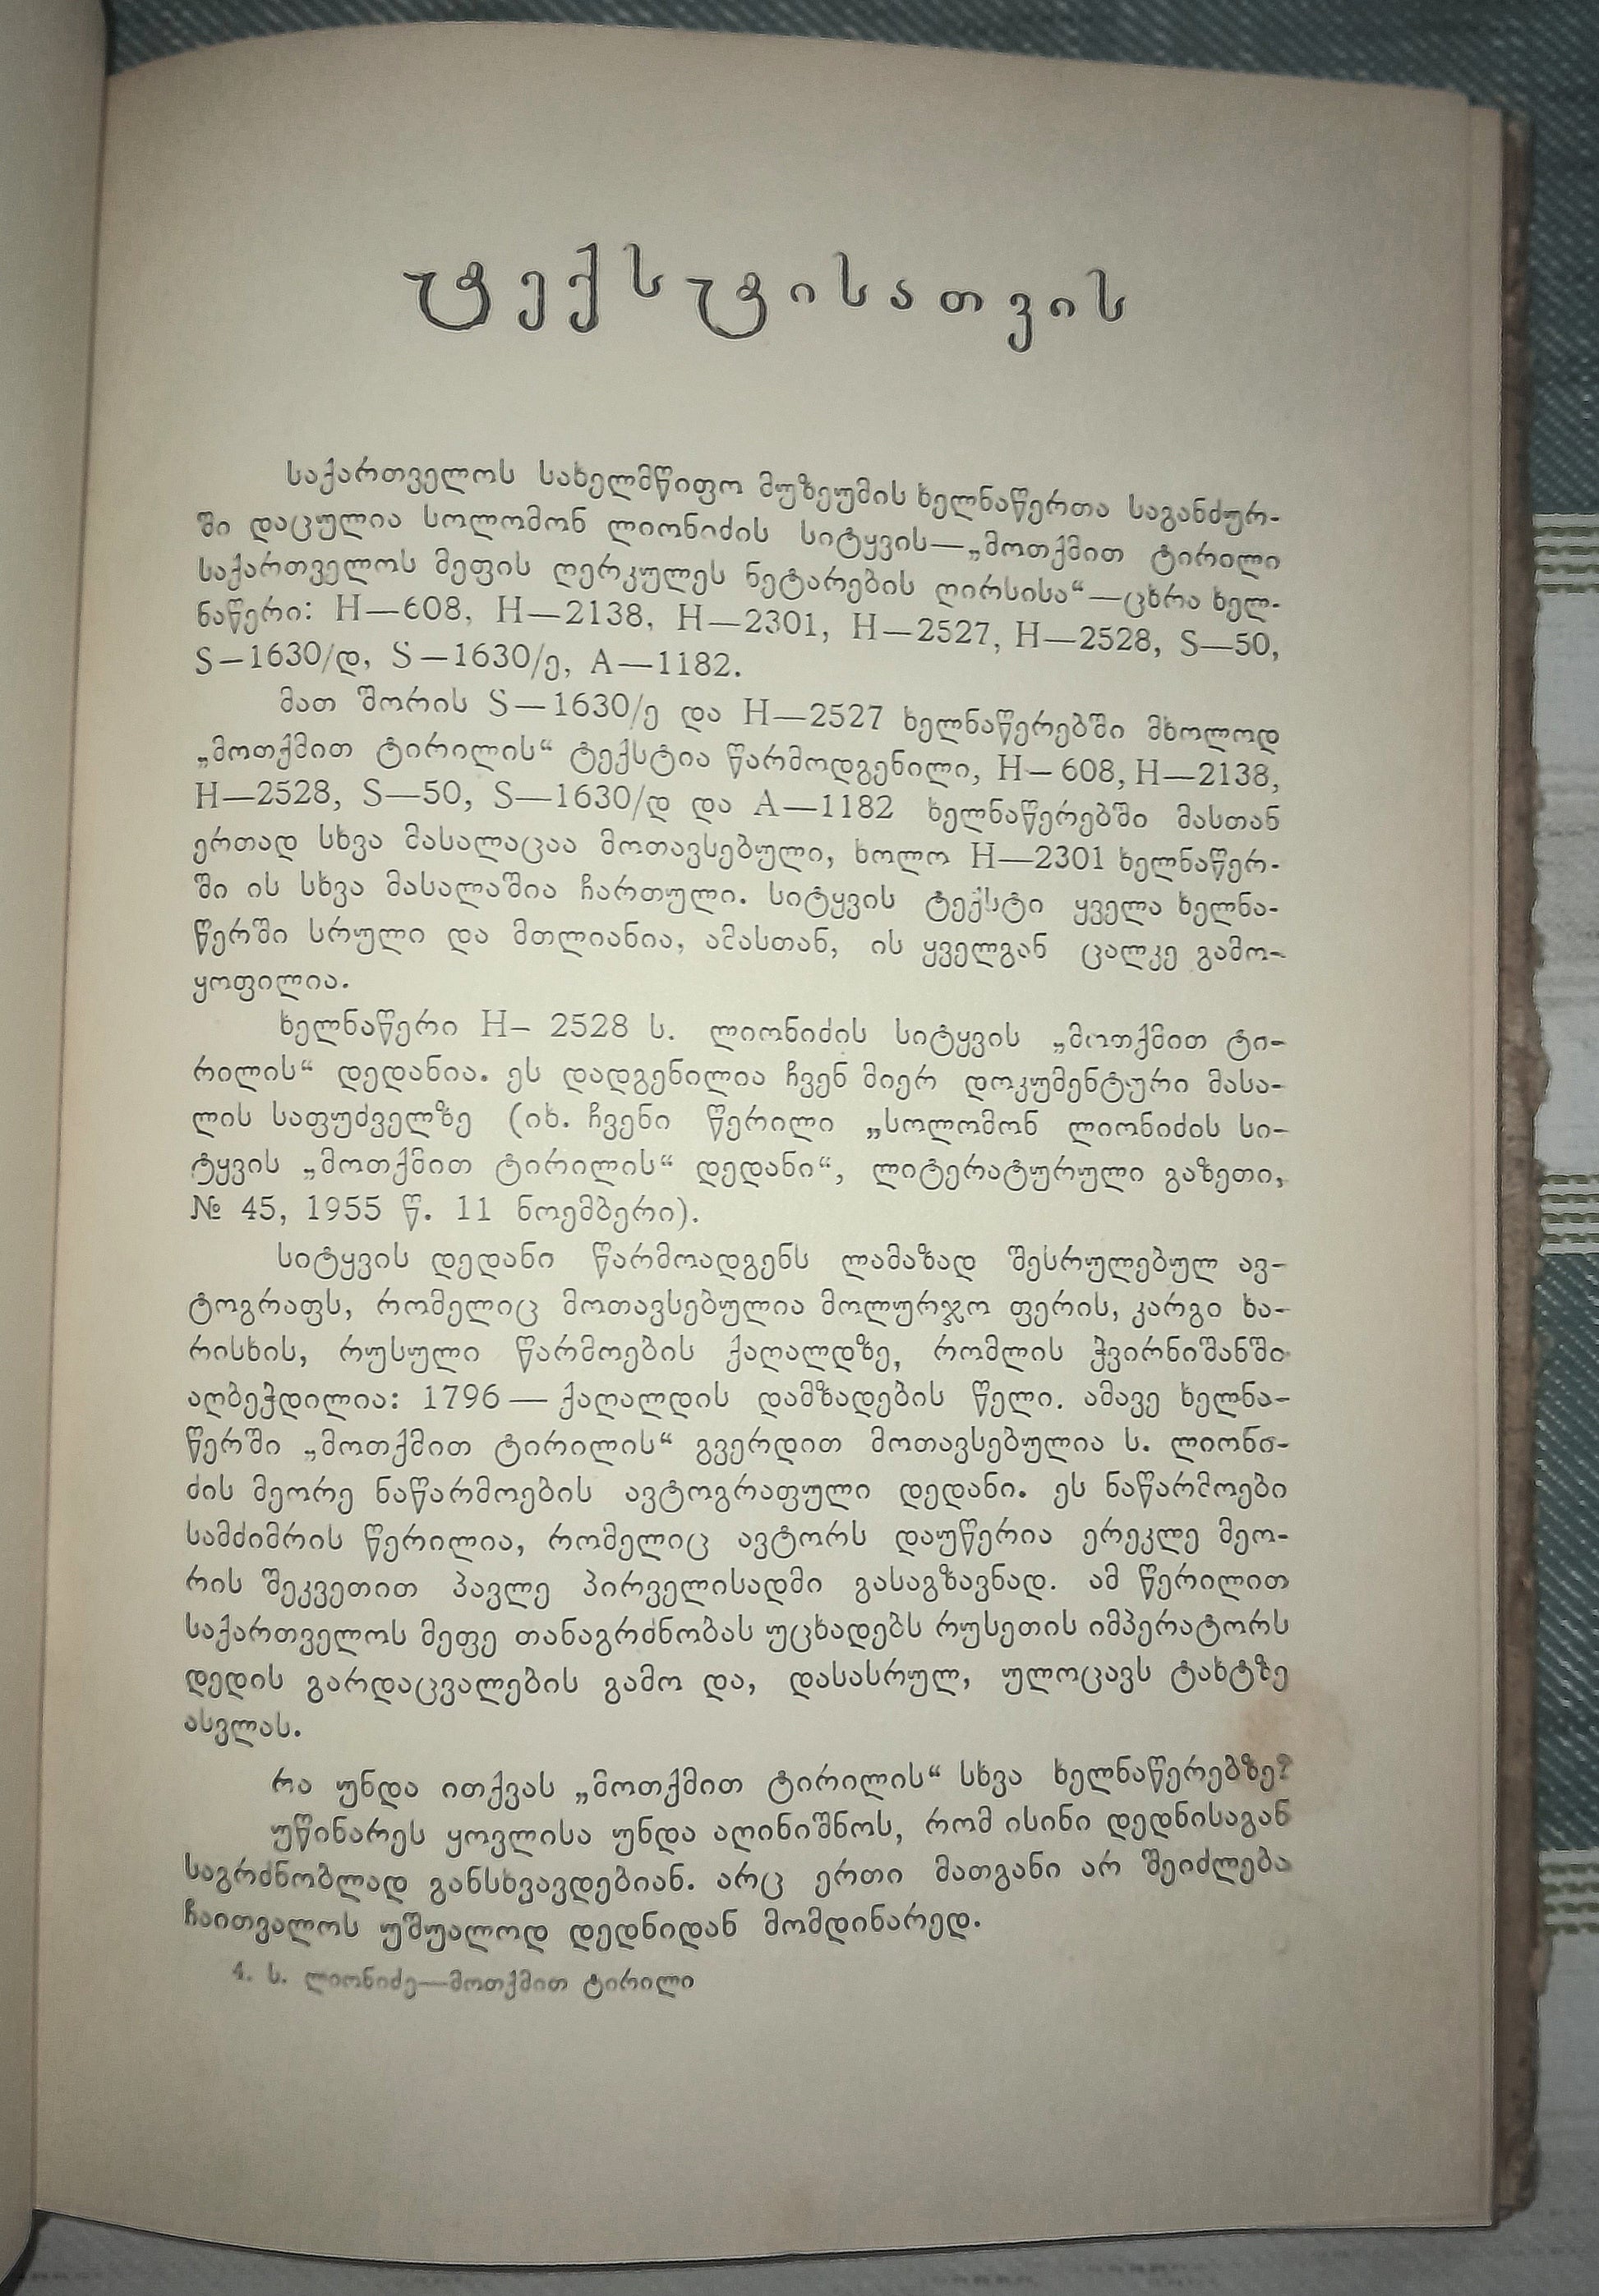 ტექსტისათვის
საქართველოს სახელმწიფო მუზეუმის ხელნაწერთა საგანძურ-
ში დაცულია სოლომონ ლიონიძის სიტყვის—„მოთქმით ტირილი
საქართველოს მეფის ღერკულეს ნეტარების ღირსისა“—ცხრა ხელ-
ნაწერი: H—608, H—2138, H—2301, H—2527, H—2528, S—50,
S—1630/დ, S—1630/ე, A—1182.
მათ შორის S—1630/ე და H—2527 ხელნაწერებში მხოლოდ
„მოთქმით ტირილის“ ტექსტია წარმოდგენილი, H—608, H—2138,
H—2528, S—50, S—1630/დ და A—1182 ხელნაწერებში მასთან
ერთად სხვა მასალაცაა მოთავსებული, ხოლო H—2301 ხელნაწერ-
ში ის სხვა მასალაშია ჩართული. სიტყვის ტექსტი ყველა ხელნა-
წერში სრული და მთლიანია, ამასთან, ის ყველგან ცალკე გამო-
ყოფილია.
ხელნაწერი H— 2528 ს. ლიონიძის სიტყვის „მოთქმით ტი-
რილის“ დედანია. ეს დადგენილია ჩვენ მიერ დოკუმენტური მასა-
ლის საფუძველზე (იხ. ჩვენი წერილი „სოლომონ ლიონიძის სი-
ტყვის „მოთქმით ტირილის“ დედანი“, ლიტერატურული გაზეთი,
№ 45, 1955 წ. 11 ნოემბერი).
სიტყვის დედანი წარმოადგენს ლამაზად შესრულებულ ავ-
ტოგრაფს, რომელიც მოთავსებულია მოლურჯო ფერის, კარგი ხა-
რისხის, რუსული წარმოების ქაღალდზე, რომლის ჭვირნიშანში
აღბეჭდილია: 1796 — ქაღალდის დამზადების წელი. ამავე ხელნა-
წერში „მოთქმით ტირილის“ გვერდით მოთავსებულია ს. ლიონი-
ძის მეორე ნაწარმოების ავტოგრაფული დედანი. ეს ნაწარმოები
სამძიმრის წერილია, რომელიც ავტორს დაუწერია ერეკლე მეო-
რის შეკვეთით პავლე პირველისადმი გასაგზავნად. ამ წერილით
საქართველოს მეფე თანაგრძნობას უცხადებს რუსეთის იმპერატორს
დედის გარდაცვალების გამო და, დასასრულ, ულოცავს ტახტზე
ასვლას.
რა უნდა ითქვას „მოთქმით ტირილის“ სხვა ხელნაწერებზე?
უწინარეს ყოვლისა უნდა აღინიშნოს, რომ ისინი დედნისაგან
საგრძნობლად განსხვავდებიან. არც ერთი მათგანი არ შეიძლება
ჩაითვალოს უშუალოდ დედნიდან მომდინარედ.
4. ს. ლიონიძე—მოთქმით ტირილი